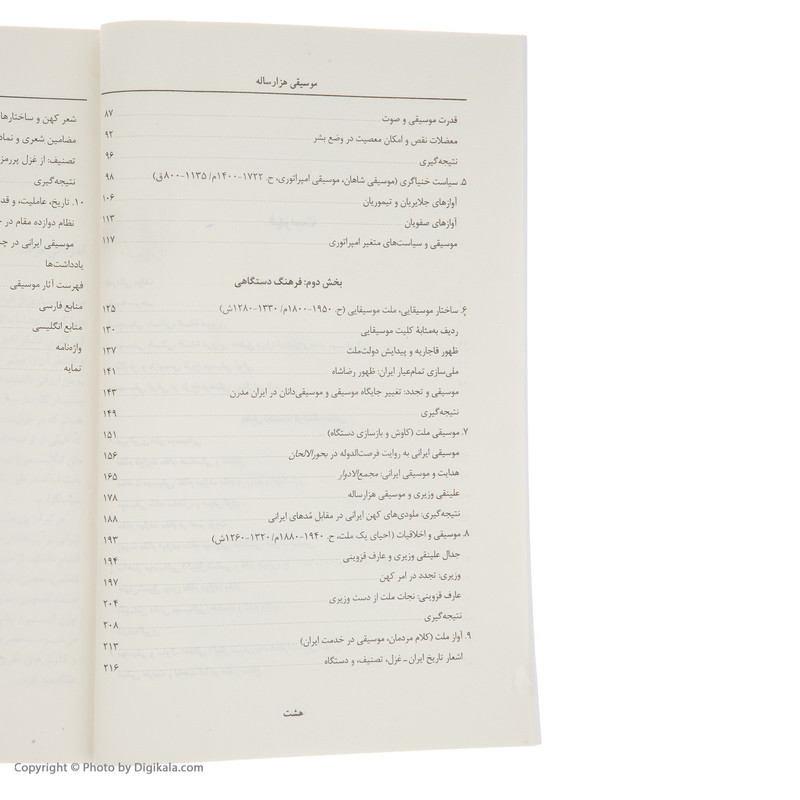 موسیقی هزارساله
قدرت موسیقی و صوت ۸۷
معضلات نقص و امکان معصیت در وضع بشر ۹۲
نتیجه‌گیری ۹۶
۵. سیاست خنیاگری (موسیقی شاهان، موسیقی امپراتوری، ح. ۱۷۲۲-۱۴۰۰م/ ۱۱۳۵-۸۰۰ق) ۹۸
آوازهای جلایریان و تیموریان ۱۰۶
آوازهای صفویان ۱۱۳
موسیقی و سیاست‌های متغیر امپراتوری ۱۱۷
بخش دوم: فرهنگ دستگاهی
۶. ساختار موسیقایی، ملت موسیقایی (ح. ۱۹۵۰-۱۸۰۰م/ ۱۳۳۰-۱۲۸۰ش) ۱۲۵
ردیف به‌مثابهٔ کلیت موسیقایی ۱۳۰
ظهور قاجاریه و پیدایش دولت‌ملت ۱۳۷
ملی‌سازی تمام‌عیار ایران: ظهور رضاشاه ۱۴۱
موسیقی و تجدد: تغییر جایگاه موسیقی و موسیقی‌دانان در ایران مدرن ۱۴۳
نتیجه‌گیری ۱۴۹
۷. موسیقی ملت (کاوش و بازسازی دستگاه) ۱۵۱
موسیقی ایرانی به روایت فرصت‌الدوله در بحورالالحان ۱۵۶
هدایت و موسیقی ایرانی: مجمع‌الادوار ۱۶۵
علینقی وزیری و موسیقی هزارساله ۱۷۸
نتیجه‌گیری: ملودی‌های کهن ایرانی در مقابل مُدهای ایرانی ۱۸۸
۸. موسیقی و اخلاقیات (احیای یک ملت، ح. ۱۹۴۰-۱۸۸۰م/ ۱۳۲۰-۱۲۶۰ش) ۱۹۳
جدال علینقی وزیری و عارف قزوینی ۱۹۴
وزیری: تجدد در امر کهن ۱۹۷
عارف قزوینی: نجات ملت از دست وزیری ۲۰۴
نتیجه‌گیری ۲۰۸
۹. آواز ملت (کلام مردمان، موسیقی در خدمت ایران) ۲۱۳
اشعار تاریخ ایران-غزل، تصنیف، و دستگاه ۲۱۶
هشت
شعر کهن و ساختارها
مضامین شعری و نماد
تصنیف: از غزل پررمز
نتیجه‌گیری
۱۰. تاریخ، عاملیت، و قد
نظام دوازده مقام در
موسیقی ایرانی در
یادداشت‌ها
فهرست آثار موسیقی
منابع فارسی
منابع انگلیسی
واژه‌نامه
نمایه
Copyright © Photo by Digikala.com